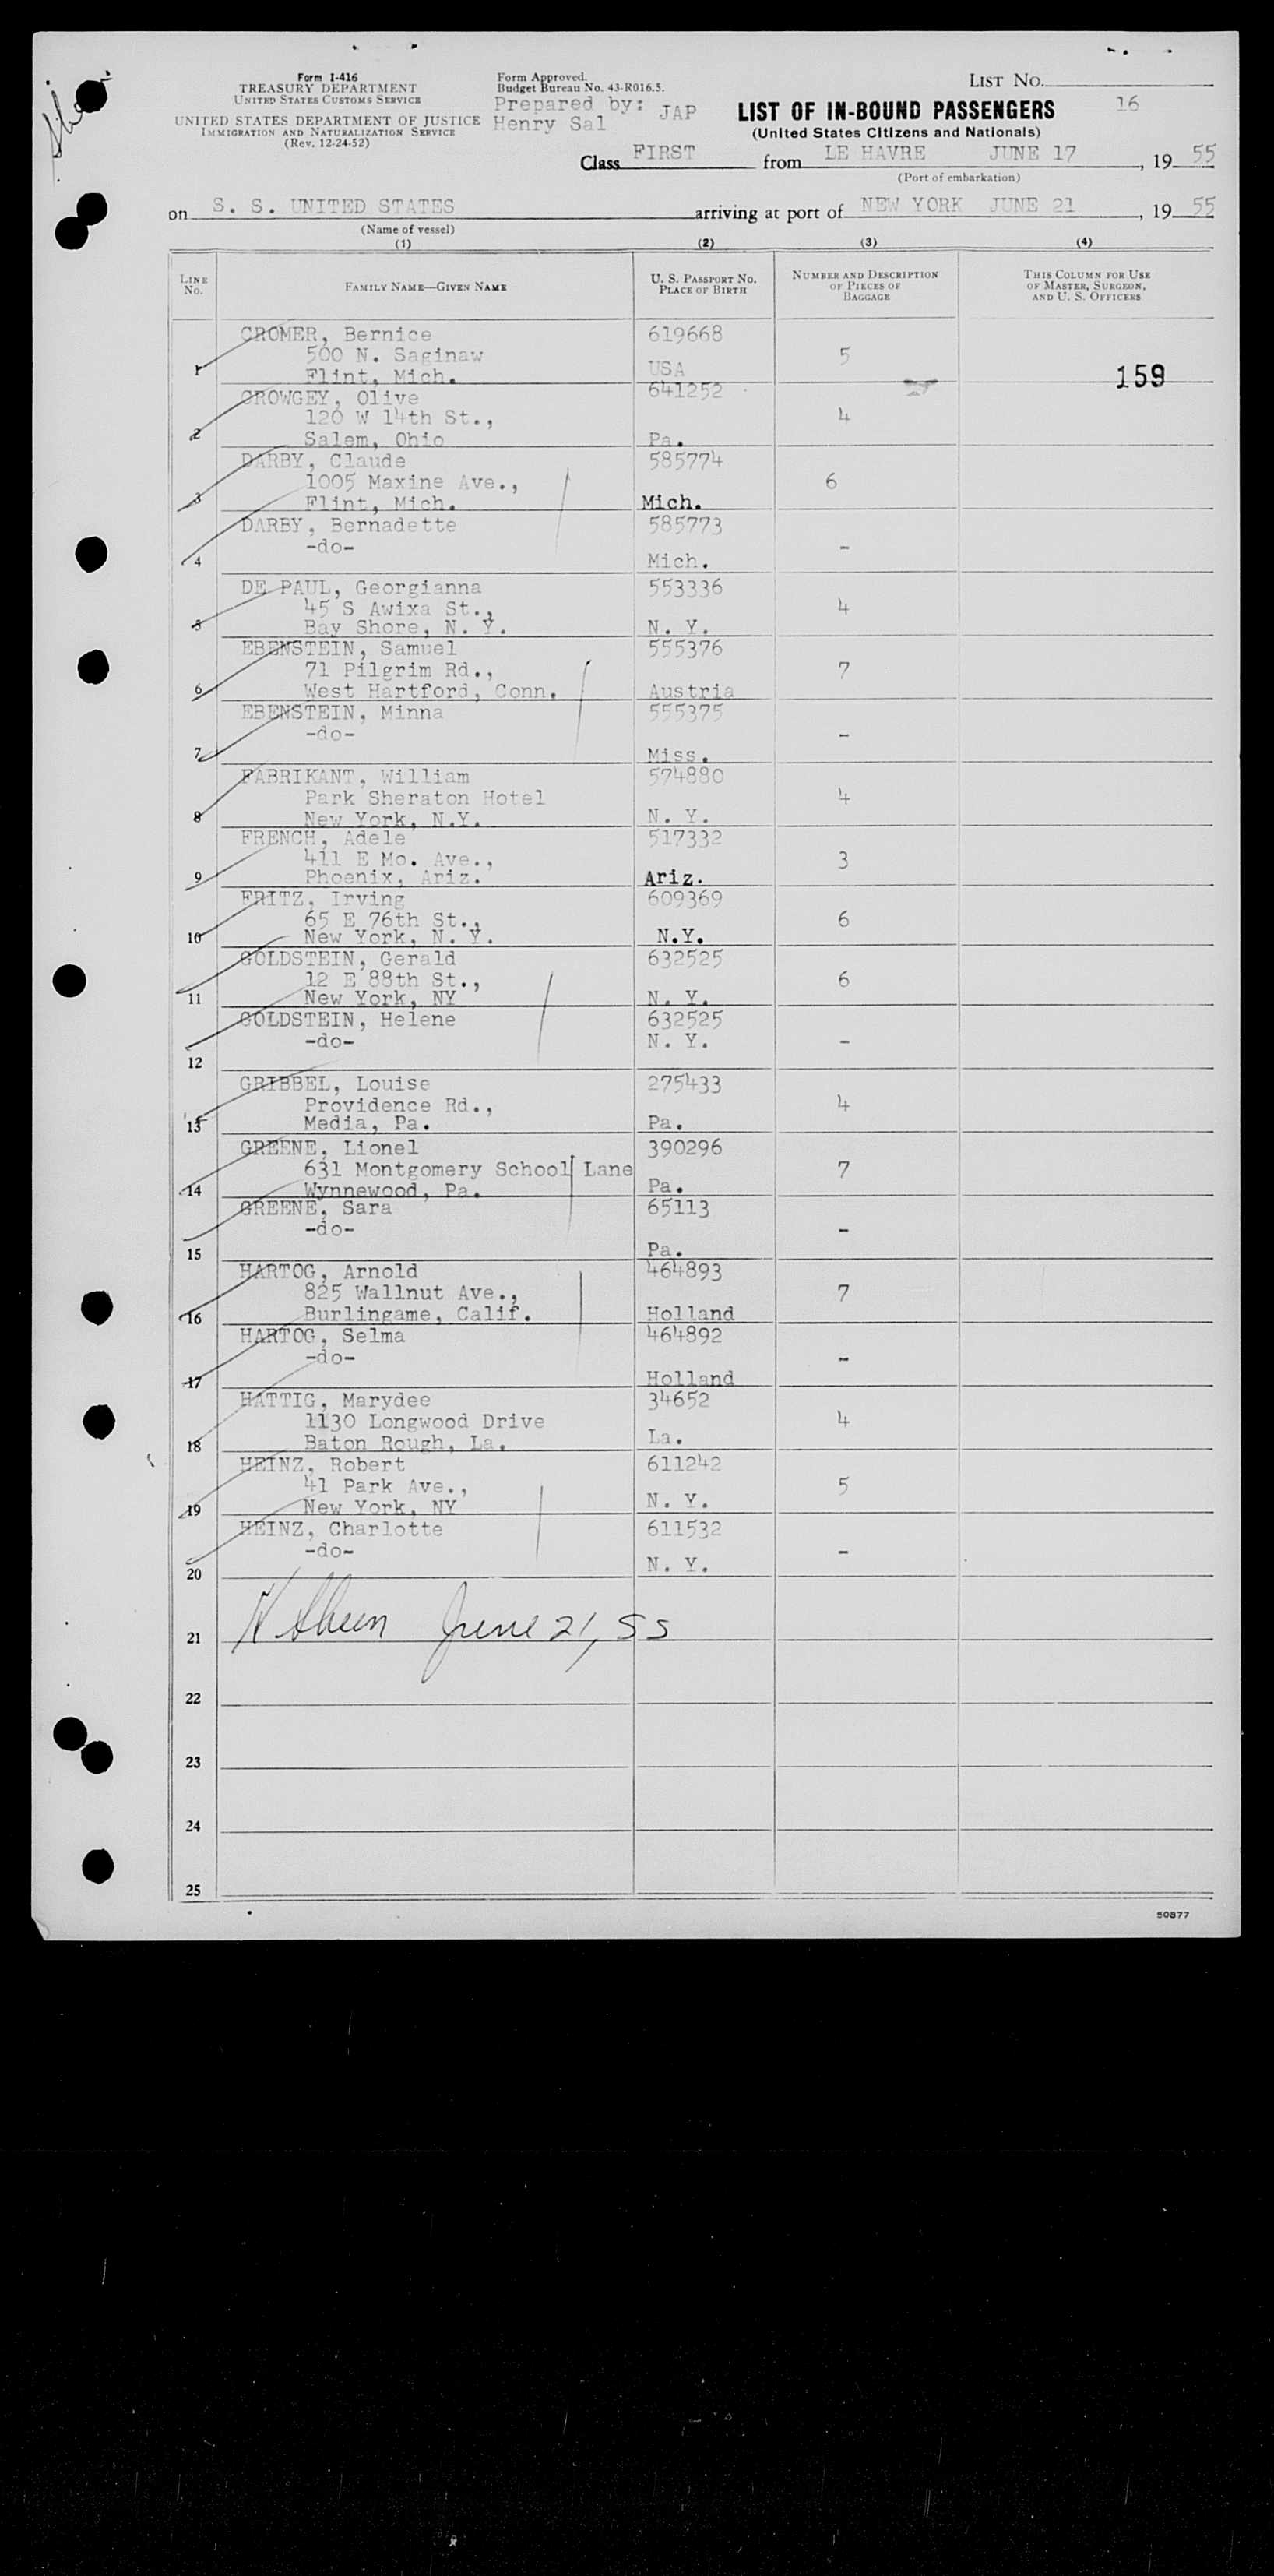 Form I-416
TREASURY DEPARTMENT
UNITED STATES CUSTOMS SERVICE
UNITED STATES DEPARTMENT OF JUSTICE
IMMIGRATION AND NATURALIZATION SERVICE
(Rev. 12-24-52)
Form Approved.
Budget Bureau No. 43-R016.5.
Prepared by: JAP
Henry Sal
LIST NO.
LIST OF IN-BOUND PASSENGERS 16
(United States Citizens and Nationals)
Class FIRST from LE HAVRE JUNE 17, 19 55
(Port of embarkation)
on S. S. UNITED STATES arriving at port of NEW YORK JUNE 21, 19 55
(Name of vessel)
(1) (2) (3) (4)
LINE NO. FAMILY NAME—GIVEN NAME U. S. PASSPORT NO. PLACE OF BIRTH NUMBER AND DESCRIPTION OF PIECES OF BAGGAGE THIS COLUMN FOR USE OF MASTER, SURGEON, AND U. S. OFFICERS
CROMER, Bernice 619668
500 N. Saginaw 5
1 Flint, Mich. USA 159
CROWGEY, Olive 641252
120 W 14th St., 4
2 Salem, Ohio Pa.
DARBY, Claude 585774
1005 Maxine Ave., 6
3 Flint, Mich. Mich.
DARBY, Bernadette 585773
-do- -
4 Mich.
DE PAUL, Georgianna 553336
45 S Awixa St., 4
5 Bay Shore, N. Y. N. Y.
EBENSTEIN, Samuel 555376
71 Pilgrim Rd., 7
6 West Hartford, Conn. Austria
EBENSTEIN, Minna 555375
-do- -
7 Miss.
FABRIKANT, William 574880
Park Sheraton Hotel 4
8 New York, N.Y. N. Y.
FRENCH, Adele 517332
411 E Mo. Ave., 3
9 Phoenix, Ariz. Ariz.
FRITZ, Irving 609369
65 E 76th St., 6
10 New York, N. Y. N.Y.
GOLDSTEIN, Gerald 632525
12 E 88th St., 6
11 New York, NY N. Y.
GOLDSTEIN, Helene 632525
-do- N. Y. -
12
GRIBBEL, Louise 275433
Providence Rd., 4
13 Media, Pa. Pa.
GREENE, Lionel 390296
631 Montgomery School Lane 7
14 Wynnewood, Pa. Pa.
GREENE, Sara 65113
-do- -
15 Pa.
HARTOG, Arnold 464893
825 Wallnut Ave., 7
16 Burlingame, Calif. Holland
HARTOG, Selma 464892
-do- -
17 Holland
HATTIG, Marydee 34652
1130 Longwood Drive 4
18 Baton Rough, La. La.
HEINZ, Robert 611242
41 Park Ave., 5
19 New York, NY N. Y.
HEINZ, Charlotte 611532
-do- -
20 N. Y.
21 June 21, 55
22
23
24
25
50877